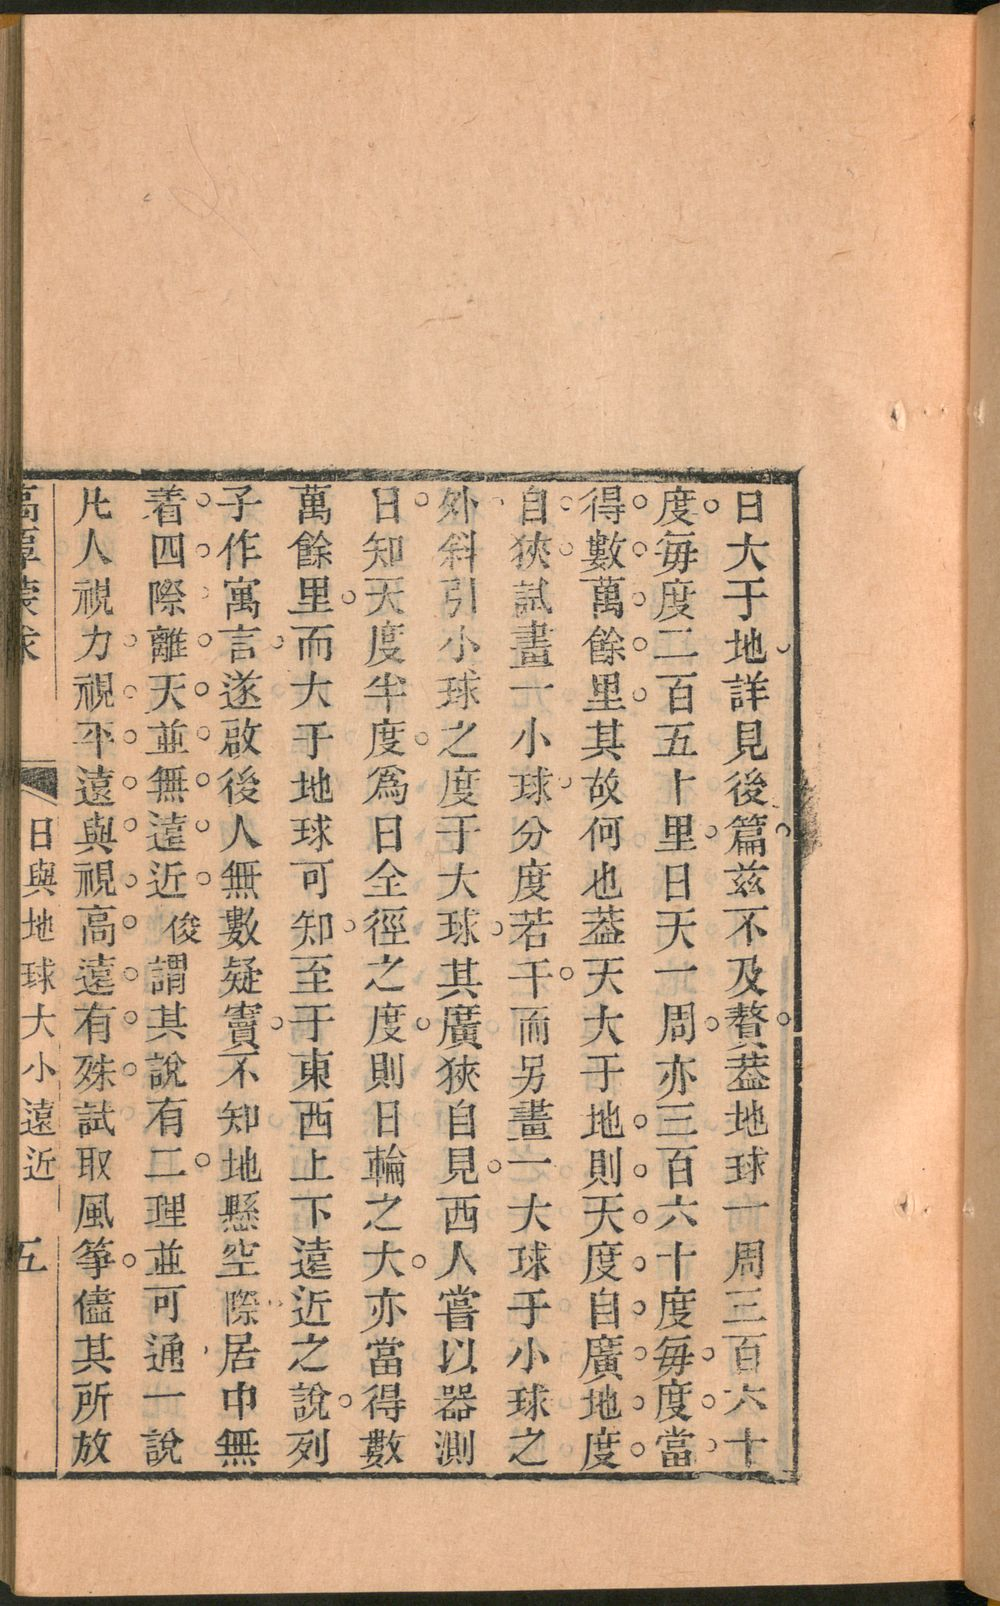 日大于地詳見後篇玆不及贅葢地球一周三百六十
度每度二百五十里日天一周亦三百六十度每度當
得數萬餘里其故何也葢天大于地則天度自廣地度
自狹試畫一小球分度若干而另畫一大球于小球之
外斜引小球之度于大球其廣狹自見西人嘗以器測
日知天度半度爲日全徑之度則日輪之大亦當得數
萬餘里而大于地球可知至于東西上下遠近之說列
子作寓言遂啟後人無數疑竇不知地懸空際居中無
着四際離天並無遠近俊謂其說有二理並可通一說
凡人視力視平遠與視高遠有殊試取風箏儘其所放
高厚蒙求 日與地球大小遠近 五